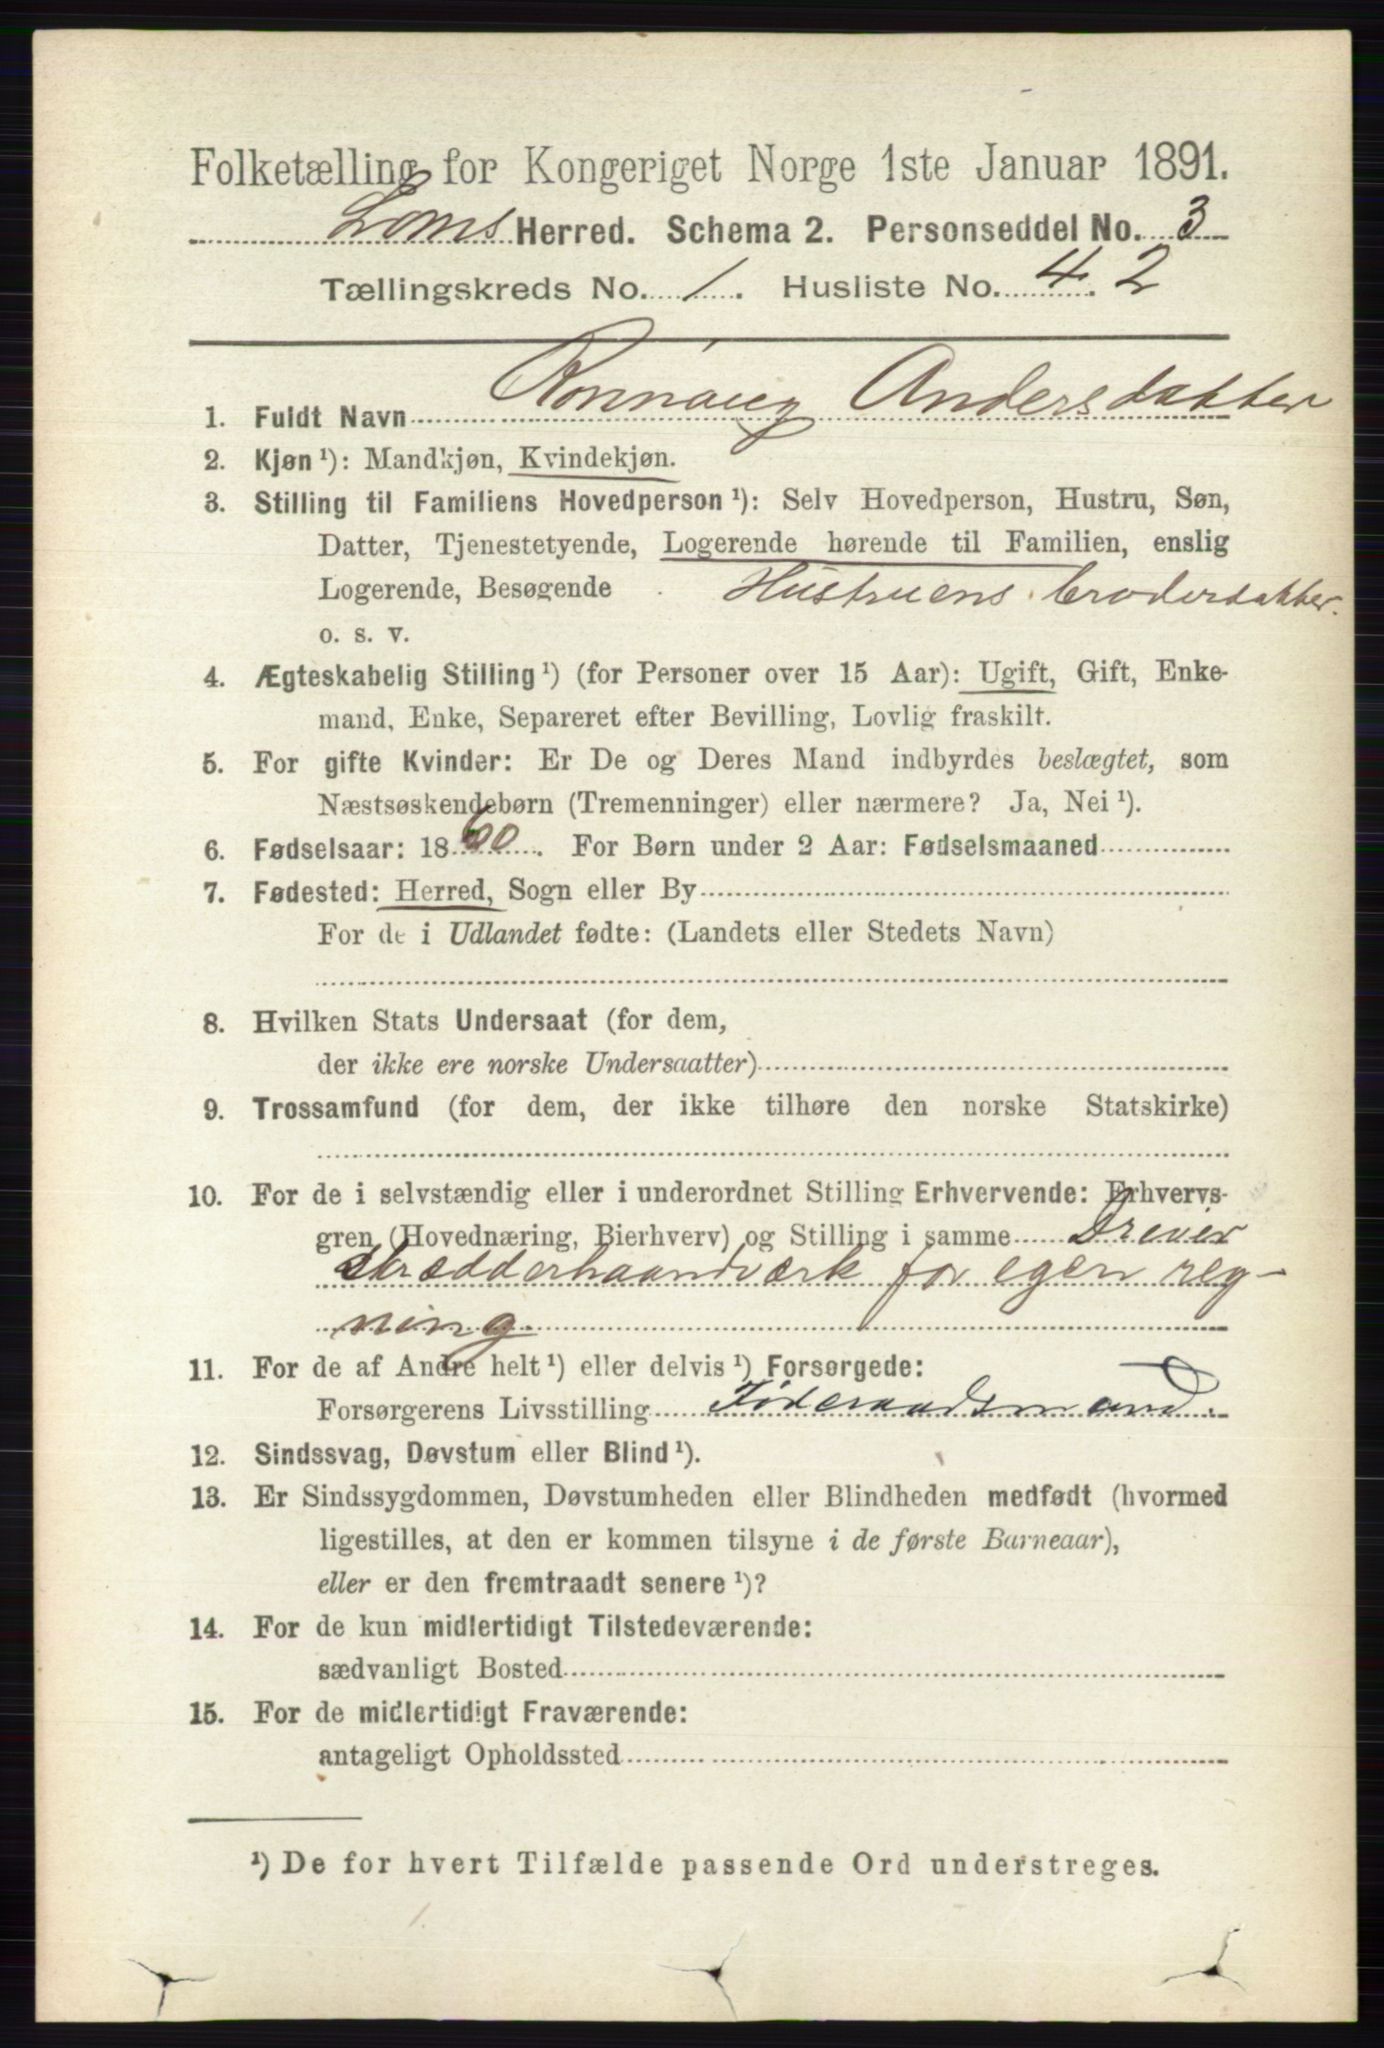 Folketælling for Kongeriget Norge 1ste Januar 1891.
Loms Herred. Schema 2. Personseddel No. 3
Tællingskreds No. 1. Husliste No. 42
1. Fuldt Navn Rønnaug Andersdatter
2. Kjøn ¹): Mandkjøn, Kvindekjøn.
3. Stilling til Familiens Hovedperson ¹): Selv Hovedperson, Hustru, Søn,
Datter, Tjenestetyende, Logerende hørende til Familien, enslig
Logerende, Besøgende Hustruens broderdatter.
o. s. v.
4. Ægteskabelig Stilling ¹) (for Personer over 15 Aar): Ugift, Gift, Enke-
mand, Enke, Separeret efter Bevilling, Lovlig fraskilt.
5. For gifte Kvinder: Er De og Deres Mand indbyrdes beslægtet, som
Næstsøskendebørn (Tremenninger) eller nærmere? Ja, Nei ¹).
6. Fødselsaar: 1860. For Børn under 2 Aar: Fødselsmaaned
7. Fødested: Herred, Sogn eller By
For de i Udlandet fødte: (Landets eller Stedets Navn)
8. Hvilken Stats Undersaat (for dem,
der ikke ere norske Undersaatter)
9. Trossamfund (for dem, der ikke tilhøre den norske Statskirke)
10. For de i selvstændig eller i underordnet Stilling Erhvervende: Erhvervs-
gren (Hovednæring, Bierhverv) og Stilling i samme Drever
Skrædderhaandværk for egen reg-
ning.
11. For de af Andre helt ¹) eller delvis ¹) Forsørgede:
Forsørgerens Livsstilling Føderaadsmand.
12. Sindssvag, Døvstum eller Blind ¹).
13. Er Sindssygdommen, Døvstumheden eller Blindheden medfødt (hvormed
ligestilles, at den er kommen tilsyne i de første Barneaar),
eller er den fremtraadt senere ¹)?
14. For de kun midlertidigt Tilstedeværende:
sædvanligt Bosted
15. For de midlertidigt Fraværende:
antageligt Opholdssted
¹) De for hvert Tilfælde passende Ord understreges.